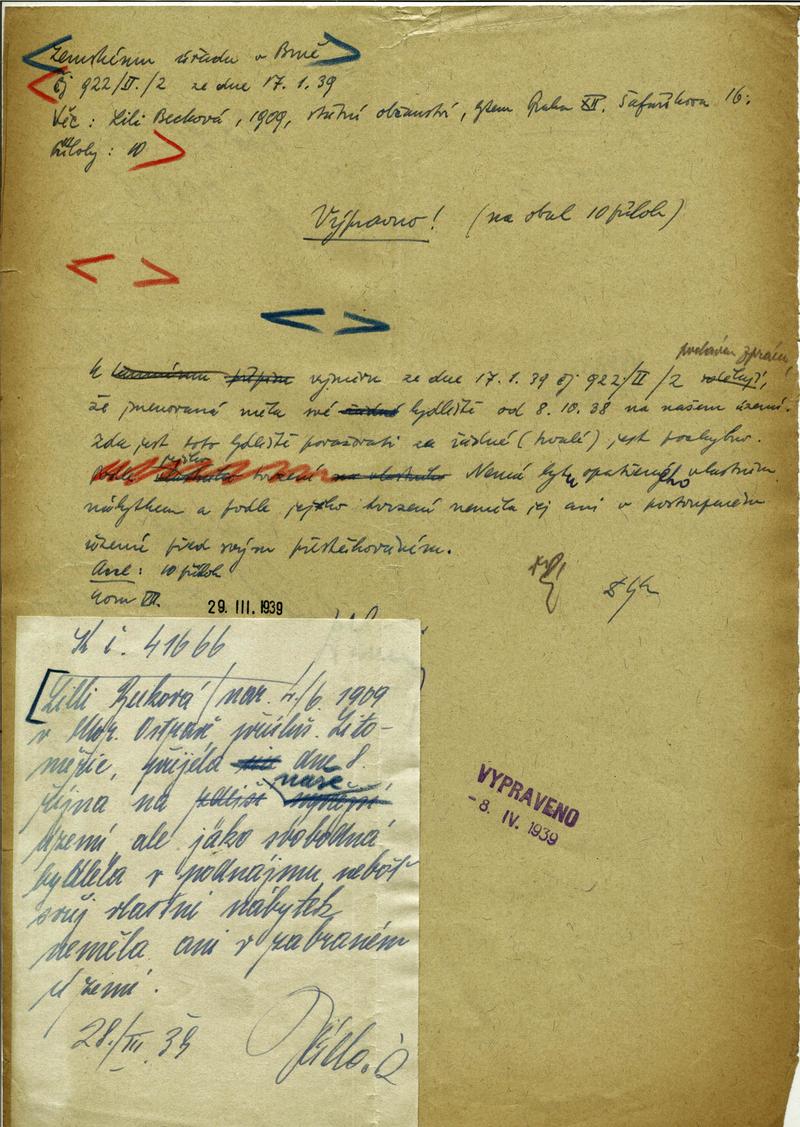 Zemskému úřadu v Brně
čj 922/II./2 ze dne 17. 1. 39
Věc: Lili Becková, 1909, státní občanství, bytem Praha XII. Šafaříkova 16.
Přílohy: 10
Výpravno! (na obal 10 příloh)
podávám zprávu,
K výměru ze dne 17. 1. 39 čj 922/II/2
že jmenovaná měla své řádné bydliště od 8. 10. 38 na našem území.
Zda jest toto bydliště považovati za řádné (trvalé) jest pochybno.
jejího tvrzení na vlastního Nemá bytu opatřeného vlastním
nábytkem a podle jejího tvrzení neměla jej ani v postoupeném
území před svým přistěhováním.
10 příloh
29. III. 1939
K č. 41666
Lilli Becková/nar. 4/6. 1909
v Mor. Ostravě přísluš. Lito-
měřic, přijela dne 8.
října na naše
území ale jako svobodná
bydlela v podnájmu neboť
svůj vlastní nábytek
neměla ani v zabraném
území.
28./III. 39
VYPRAVENO
- 8. IV. 1939